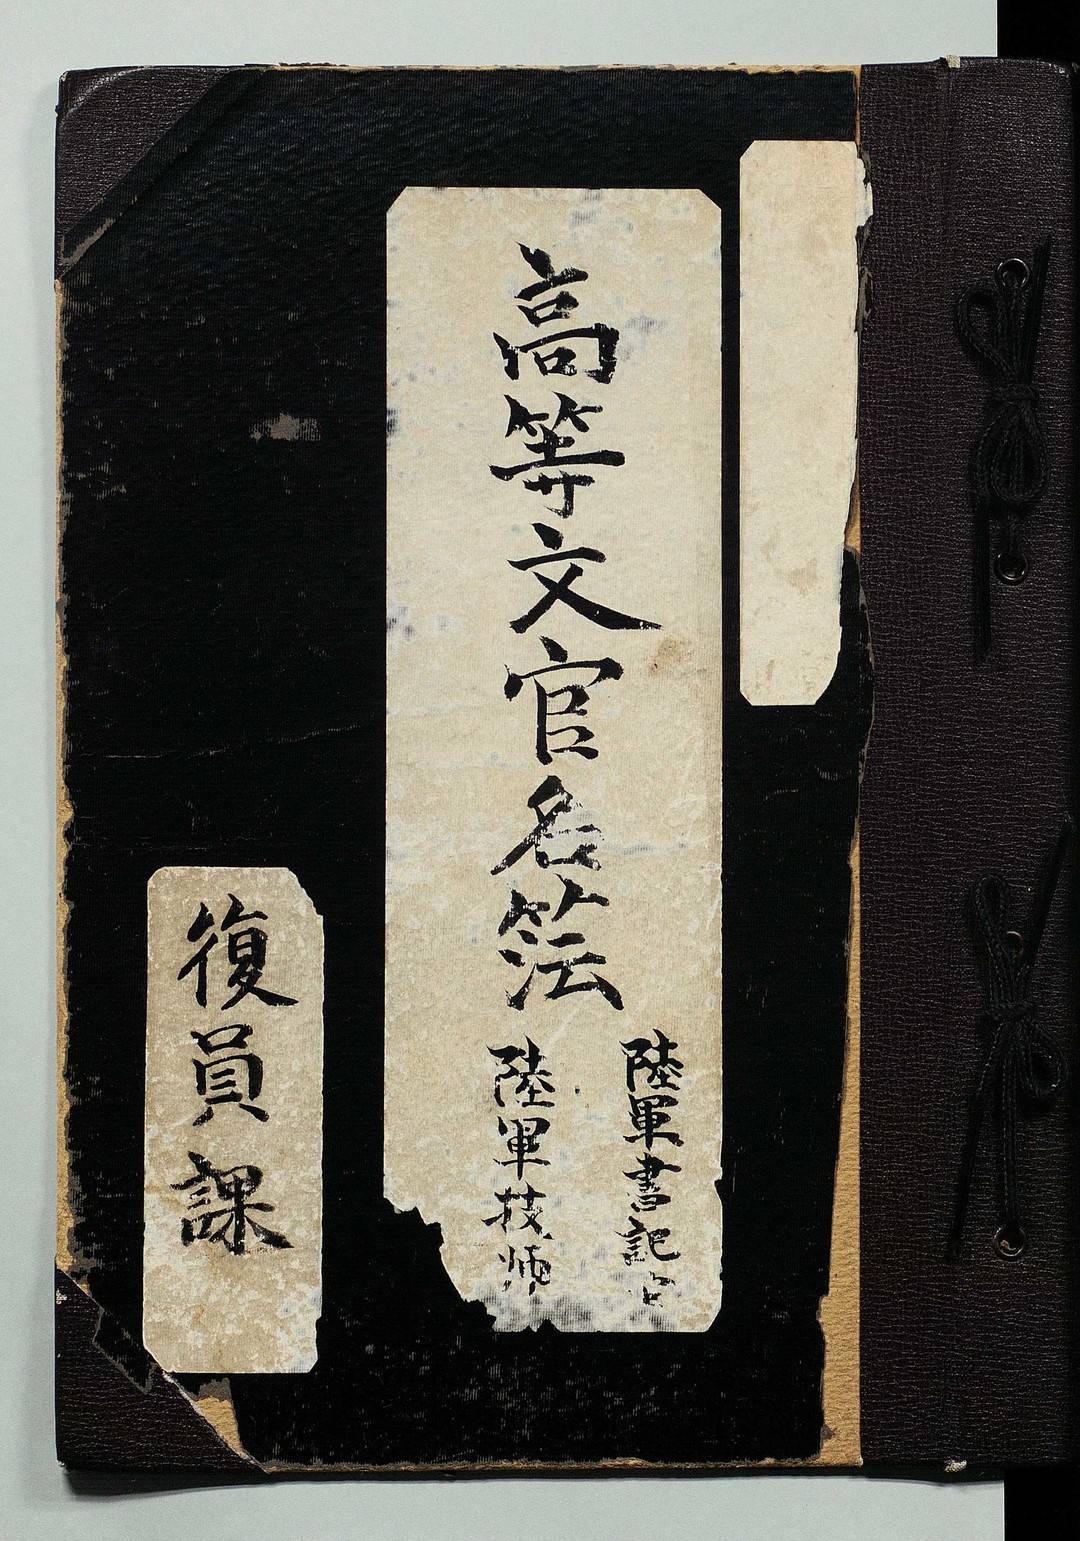 高等文官名簿
陸軍書記
陸軍技师
復員課